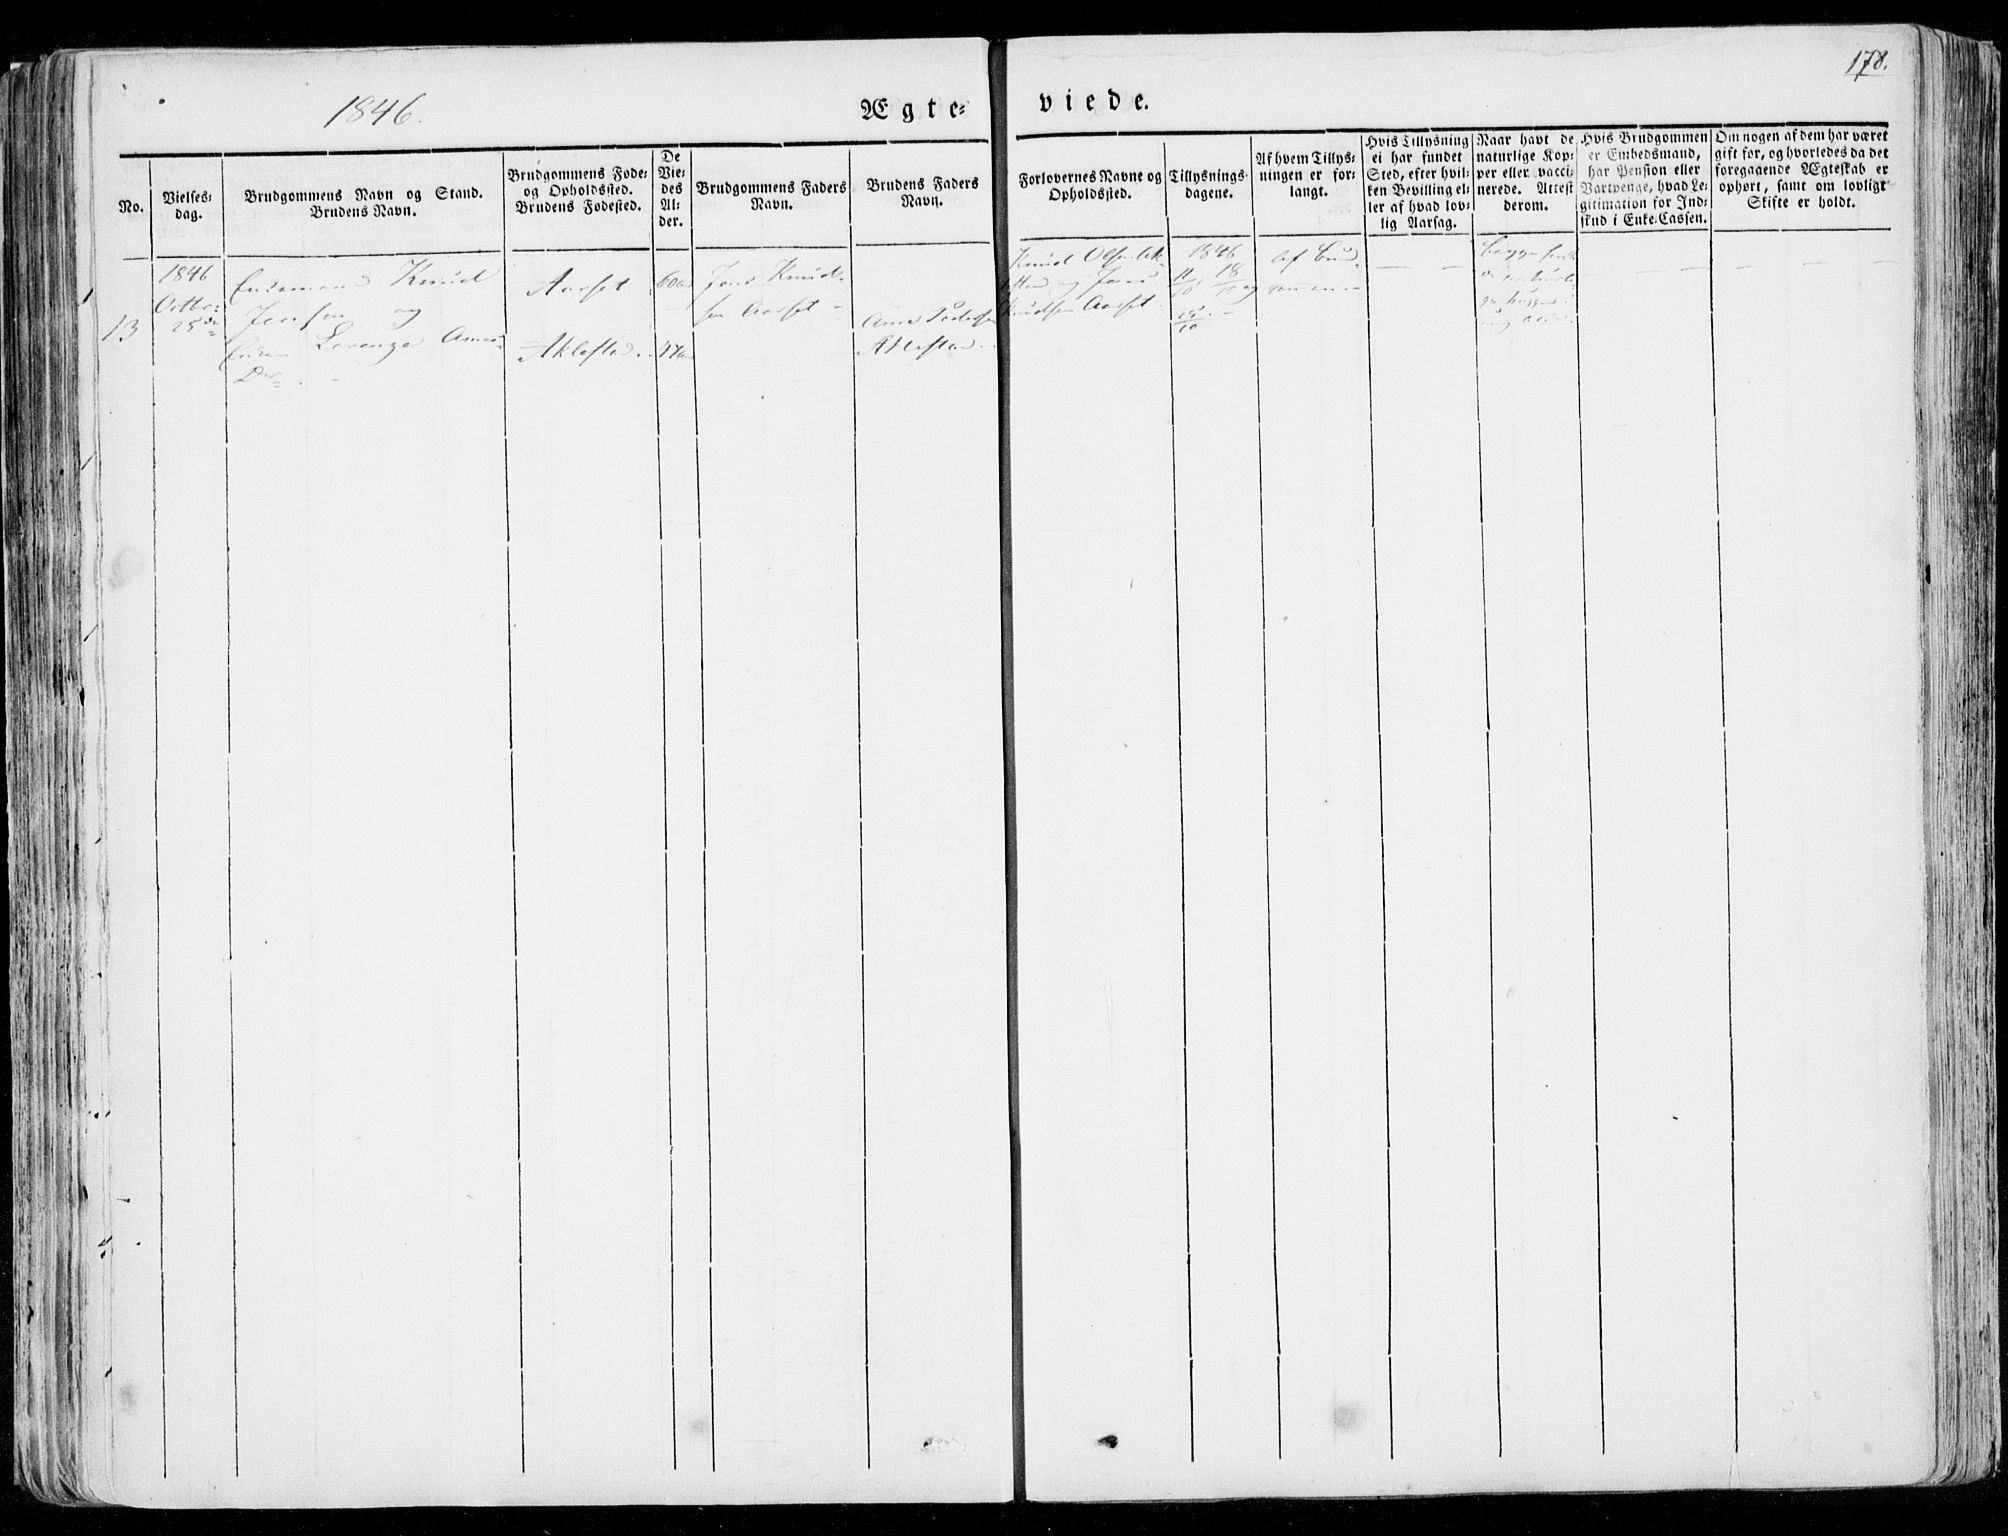 178.
1846.
Ægte=
viede.
No.
Vielses=
dag.
Brudgommens Navn og Stand.
Brudens Navn.
Brudgommens Føde=
og Opholdssted.
Brudens Fødested.
De
Vie=
des
Al=
der.
Brudgommens Faders
Navn.
Brudens Faders
Navn.
Forlovernes Navne og
Opholdssted.
Tillysnings=
dagene.
Af hvem Tillys=
ningen er for=
langt.
Hvis Tillysning
ei har fundet
Sted, efter hvil=
ken Bevilling el=
ler af hvad lov=
lig Aarsag.
Naar havt de
naturlige Kop=
per eller vacci=
nerede. Attest
derom.
Hvis Brudgommen
er Embedsmand,
har Pension eller
Vartpenge, hvad Le=
gitimation for Ind=
skud i Enke=Cassen.
Om nogen af dem har været
gift før, og hvorledes da det
foregaaende Ægteskab er
ophørt, samt om lovligt
Skifte er holdt.
13
1846
Octbr.
25de
Enkemand Knud
Jensen og
Lorenze
Aarset
Aklestad.
60 aar
47 aar
Jens Knud=
sen Aarset
Pedersen
Aklestad.
Knud Olsen
og Jens
Knudsen Aarset.
1846
11/10, 18/10 og
25/10
Af Brud=
gommen
Begge